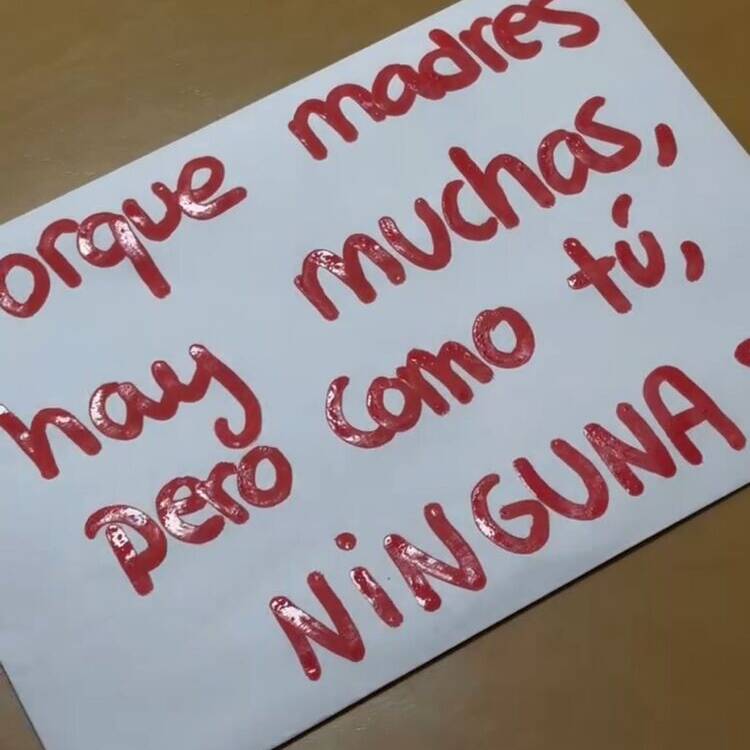 orque madres
hay muchas,
pero como tú,
NiNGUNA